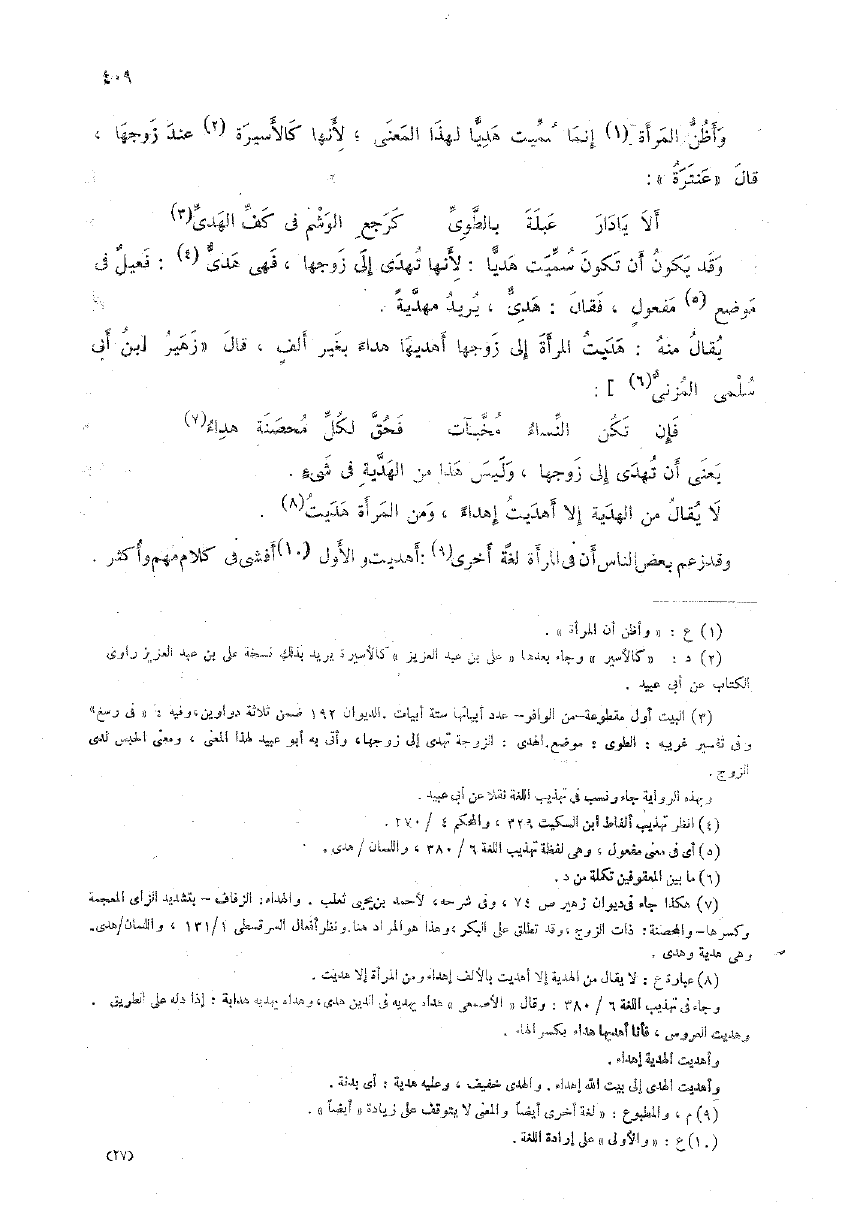 ٤٠٩
وَأَظُنُّ المَرأَة (١) إنمَا سُمِّيت هَدِيًّا لهذَا المَعنَى ؛ لأِنها كَالأَسيرَة (٢) عندَ زَوجهَا ،
قالَ «عَنتَرَةُ » :
أَلاَ يَادَارَ عَبلَةَ بالطَّوِىِّ كَرَجعِ الوَشْم فى كَفِّ الهَدىِّ(٣)
وَقَد يَكونُ أَن تَكونَ سُمِّيَت هَديًّا : لأَنها تُهدَى إلَى زَوجها ، فَهى هَدىٌّ (٤) : فَعيلٌ فى
مَوضع (٥) مَفعولٍ ، فَقالَ : هَدِىٌّ ، يُريدُ مهديَّةً .
يُقالُ منهُ : هَدَيتُ المرأَةَ إلى زَوجها أَهديهَا هداءً بغَير أَلفٍ ، قالَ «زهَيرُ [بنُ أَبى
سُلْمى المُزنىّ(٦) ] :
فَإِن تَكُن النِّساءُ مُخَبَّآت فَحُقَّ لكُلِّ مُحصَنَةٍ هداءُ(٧)
يَعنَى أَن تُهدَى إلى زَوجها ، وَلَيسَ هَذا من الهَدَّية فى شَىءٍ .
لَا يُقالُ من الهدية إلا أَهدَيتُ إهداءً ، وَمن المَرأَة هَدَيتُ(٨) .
وقدزعم بعض الناس أن فى المرأَة لغةً أُخرى(٩) :أَهديت و الأَول (١٠)أَفشى فى كلام مهم وأَكثر .
(١) ع : «وأظن أن المرأة » .
(٢) د : «كالأسير » وجاء بعدها «على بن عبد العزيز » كالأسيرة يريد بذلك نسخة على بن عبد العزيز راوى
الكتاب عن أبى عبيد .
(٣) البيت أول مقطوعة–من الوافر– عدد أبياتها ستة أبيات .الديوان ١٩٢ ضمن ثلاثة دواوين،وفيه : « فى رسغ»
وفى تفسير غريبه : الطوى : موضع.الهدى : الزوجة تهدى إلى زوجها، وأتى به أبو عبيد لهذا المعنى ، ومعنى الحبس لدى
الزوج .
وبهذه الرواية جاء ونسب فى تهذيب اللغة نقلا عن أبى عبيد .
(٤) انظر تهذيب ألفاظ ابن السكيت ٣٢٩ ، والمحكم ٤ / ٢٧٠ .
(٥) أى فى معنى مفعول ، وهى لفظة تهذيب اللغة ٦ / ٣٨٠ ، واللسان / هدى .
(٦) ما بين المعقوفين تكملة من د .
(٧) هكذا جاء فى ديوان زهير ص ٧٤ ، وفى شرحه، لأحمد بن يحيى ثعلب . والهداء: الزفاف – بتشديد الزاى المعجمة
وكسرها– والمحصنة: ذات الزوج ،وقد تطلق على البكر ،وهذا هو المراد هنا.ونظر أفعال السرقسطى ١٣١/١ ، واللسان/هدى.
وهى هدية وهدى .
(٨) عبارة ع : لا يقال من الهدية إلا أهديت بالألف إهداء ومن المرأة إلا هديت .
وجاء فى تهذيب اللغة ٦ / ٣٨٠ : وقال «الأصمعى » هداه يهديه فى الدين هدى، وهداه يهديه هداية : إذا دله على الطريق .
وهديت العروس ، فأنا أهديها هداء بكسر الهاء .
وأهديت الهدية إهداء .
وأهديت الهدى إلى بيت الله إهداء . والهدى خفيف ، وعليه هدية : أى بدنة .
(٩) م ، والمطبوع : « لغة أخرى أيضاً والمعنى لا يتوقف على زيادة « أيضاً » .
(١٠) ع : «والأولى » على إرادة اللغة .
(٢٧)